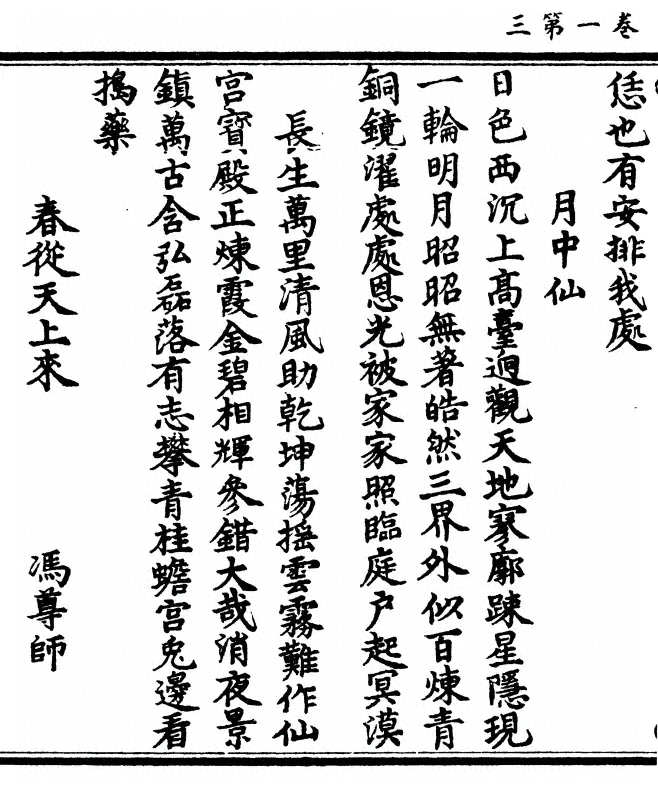 三第一卷
恁也有安排我處
月中仙
日色西沉上高臺迥觀天地寥廓踈星隱現
一輪明月昭昭無著皓然三界外似百煉青
銅鏡濯處處恩光被家家照臨庭户起冥漠
長生萬里清風助乾坤蕩摇雲霧難作仙
宫寳殿正煉霞金碧相輝參錯大哉消夜景
鎮萬古含弘磊落有志攀青桂蟾宫兎邊看
搗藥
春從天上來
馮尊師